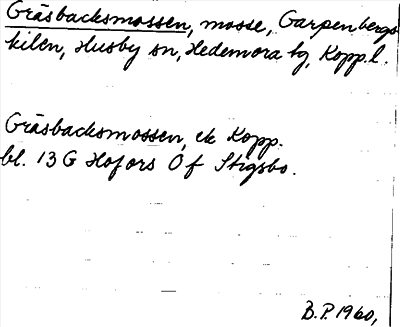 Gräsbacksmossen, mosse, Garpenbergs
kilen, Husby sn, Hedemora tg, Kopp. l.
Gräsbacksmossen, ek Kopp.
bl. 13 G Hofors Ö f Stigsbo.
B.P. 1960,